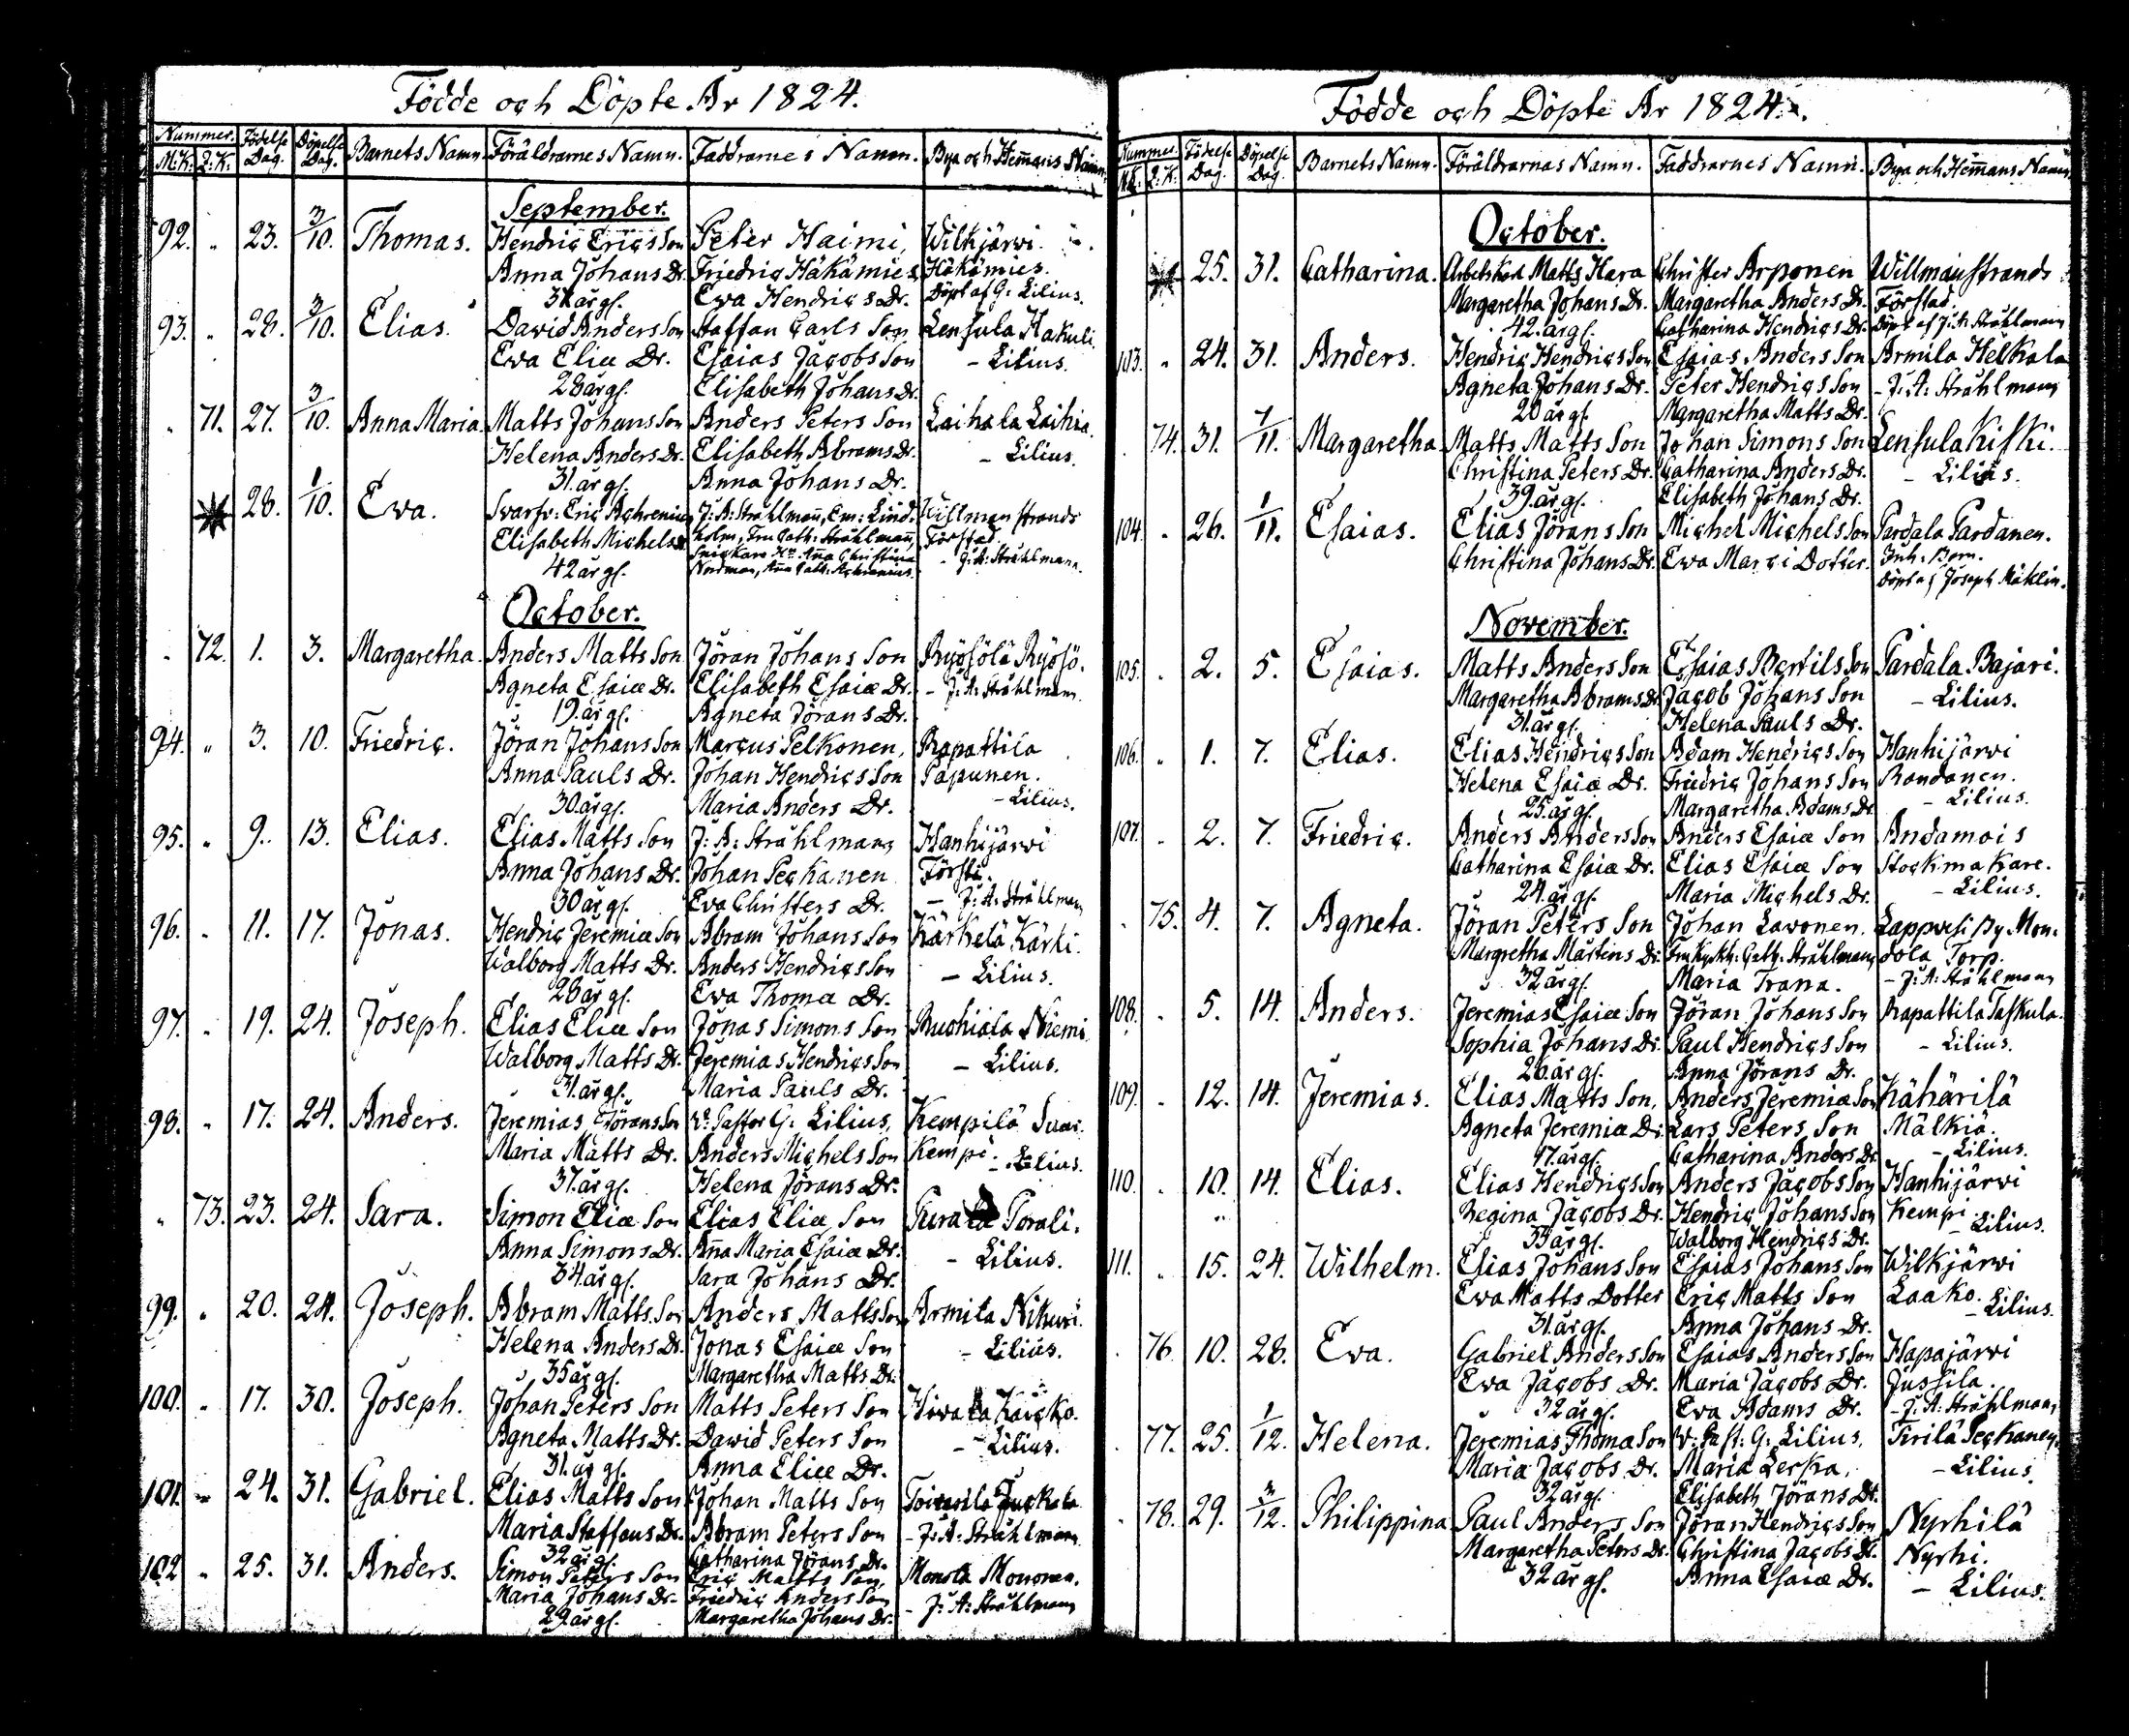 Födde och Döpte År 1824.
Nummer. Födelse Dag. Döpelse Dag. Barnets Namn. Föräldrarnes Namn. Faddrarnes Namn. Bya och Hem̄ans Namn.
M:K: Q:K:
September.
92. „ 23. 3/10. Thomas. Hendric Erics Son Peter Haimi, Wilkjärwi
Anna Johans Dr. Friedric Häkämies Häkämies.
år gl. Ewa Hendrics Dr. Döpt af G: Lilius.
93. „ 28. 3/10. Elias. David Anders Son Staffan Carls Son Lensula Hakuli
Ewa Eliæ Dr. Esaias Jacobs Son – Lilius.
28 år gl. Elisabeth Johans Dr.
„ 71. 27. 3/10. Anna Maria. Matts Johans Son Anders Peters Son Laihala Laihia.
Helena Anders Dr. Elisabeth Abrams Dr. – Lilius.
31. år gl. Anna Johans Dr.
28. 1/10. Ewa. Svarfv: Eric Achrenius J: A: Strahlman̄, Em: Lind- Willmanstrands
Elisabeth Michels Dr. holm, Fru Cath: Strahlman̄, Förstad.
42 år gl. Snickare An̄a Christina – J: A: Strahlmann.
Nordman, An̄a Cath: Achrenius.
October.
„ 72. 1. 3. Margaretha. Anders Matts Son Jöran Johans Son Ryösölä Ryösö.
Agneta Esaiæ Dr. Elisabeth Esaiæ Dr. – J: A: Strahlmann
19. år gl. Agneta Jörans Dr.
94. „ 3. 10. Friedric. Jöran Johans Son Marcus Pelkonen, Rapattila
Anna Pauls Dr. Johan Hendrics Son Papunen.
30. år gl. Maria Anders Dr. – Lilius.
95. „ 9. 13. Elias. Elias Matts Son J: A: Strahlmann Hanhijärwi
Anna Johans Dr. Johan Peckanen Försti.
30 år gl. Eva Christers Dr. – J: A: Strahlmann
96. „ 11. 17. Jonas. Hendric Jeremiæ Son Abram Johans Son Kärkelä Kärki.
Walborg Matts Dr. Anders Hendrics Son – Lilius.
28 år gl. Ewa Thomæ Dr.
97. „ 19. 24. Joseph. Elias Eliæ Son Jonas Simons Son Ruohiala Niemi
Walborg Matts Dr. Jeremias Hendrics Son – Lilius.
31. år gl. Maria Pauls Dr.
98. „ 17. 24. Anders. Jeremias Jörans Son V: Pastor G: Lilius, Kempilä Suur-
Maria Matts Dr. Anders Michels Son Kempi. – Lilius.
37. år gl. Helena Jörans Dr.
„ 73. 23. 24. Sara. Simon Eliæ Son Elias Eliæ Son Purala Porali.
Anna Simons Dr. An̄a Maria Esaiæ Dr. – Lilius.
34. år gl. Sara Johans Dr.
99. „ 20. 24. Joseph. Abram Matts Son Anders Matts Son Armila Nikuri.
Helena Anders Dr. Jonas Esaiæ Son – Lilius.
35 år gl. Margaretha Matts Dr.
100. „ 17. 30. Joseph. Johan Peters Son Matts Peters Son
Agneta Matts Dr. Dawid Peters Son – Lilius.
31. år gl. Anna Eliæ Dr.
101. „ 24. 31. Gabriel. Elias Matts Son Johan Matts Son
Maria Staffans Dr. Abram Peters Son – J: A: Strahlmann
32 år gl. Catharina Jörans Dr.
102 „ 25. 31. Anders. Simon Peters Son Eric Matts Son, Monola Mononen.
Maria Johans Dr. Friedric Anders Son – J: A: Strahlmann
29. år gl. Margaretha Johans Dr.
Födde och Döpte År 1824.
Nummer. Födelse Dag. Döpelse Dag. Barnets Namn. Föräldrarnas Namn. Faddrarnes Namn. Bya och Hem̄ans Namn.
M:K: Q:K:
October.
25. 31. Catharina. Arbetskarl Matts Hara Christer Arponen Willmanstrands
Margaretha Johans Dr. Margaretha Anders Dr. Förstad.
42. år gl. Catharina Hendrics Dr. Döpt af J: A: Strahlmann
103. „ 24. 31. Anders. Hendric Hendrics Son Esaias Anders Son Armila Helkala
Agneta Johans Dr. Peter Hendrics Son – J: A: Strahlmann
20 år gl. Margaretha Matts Dr.
74. 31. 7/11. Margaretha Matts Matts Son Johan Simons Son Lensula Kiski.
Christina Peters Dr. Catharina Anders Dr. – Lilius.
39. år gl. Elisabeth Johans Dr.
104. „ 26. 1/11. Esaias. Elias Jörans Son Michel Michels Son Pardala Pardanen.
Christina Johans Dr. Ewa Marci Dotter. Inh: Barn.
Döpt af Joseph Mäklin.
November.
105. „ 2. 5. Esaias. Matts Anders Son Esaias Bertils Son Pardala Bajari.
Margaretha Abrams Dr. Jacob Johans Son – Lilius.
31. år gl. Helena Pauls Dr.
106. „ 1. 7. Elias. Elias Hendrics Son Adam Hendrics Son Hanhijärwi
Helena Esaiæ Dr. Friedric Johans Son Randanen.
25. år gl. Margaretha Adams Dr. – Lilius.
107. „ 2. 7. Friedric. Anders Anders Son Anders Esaiæ Son Andamois
Catharina Esaiæ Dr. Elias Esaiæ Son Stockmakare.
24. år gl. Maria Michels Dr. – Lilius.
75. 4. 7. Agneta. Jöran Peters Son Johan Lavonen, Lappvesi By Mon-
Margretha Mårtens Dr. Fru Cath: Strahlmann dola Torp.
32 år gl. Maria Trana. – J: A: Strahlmann
108. „ 5. 14. Anders. Jeremias Esaiæ Son Jöran Johans Son Rapattila Taskula.
Sophia Johans Dr. Paul Hendrics Son – Lilius.
26. år gl. Anna Jörans Dr.
109. „ 12. 14. Jeremias. Elias Matts Son, Anders Jeremiæ Son Kähärilä
Agneta Jeremiæ Dr. Lars Peters Son Mälkiä.
år gl. Catharina Anders Dr. – Lilius.
110. „ 10. 14. Elias. Elias Hendrics Son Anders Jacobs Son Hanhijärwi
Regina Jacobs Dr. Hendric Johans Son Kempi.
år gl. Walborg Hendrics Dr. – Lilius.
111. „ 15. 24. Wilhelm. Elias Johans Son Esaias Johans Son Wilkjärwi
Ewa Matts Dotter Eric Matts Son Laako.
31. år gl. Anna Johans Dr. – Lilius.
76. 10. 28. Eva. Gabriel Anders Son Esaias Anders Son Hapajärwi
Eva Jacobs Dr. Maria Jacobs Dr. Jussila.
32 år gl. Eva Adams Dr. – J: A: Strahlmann
77. 25. 1/12. Helena. Jeremias Thomæ Son V: Past: G: Lilius, Tirilä Peckanen
Maria Jacobs Dr. Maria Lecka, – Lilius.
32 år gl. Elisabeth Jörans Dr.
78. 29. /12. Philippina Paul Anders Son Jöran Hendrics Son Nyrhilä
Margaretha Peters Dr. Christina Jacobs Dr. Nyrhi.
32 år gl. Anna Esaiæ Dr. – Lilius.